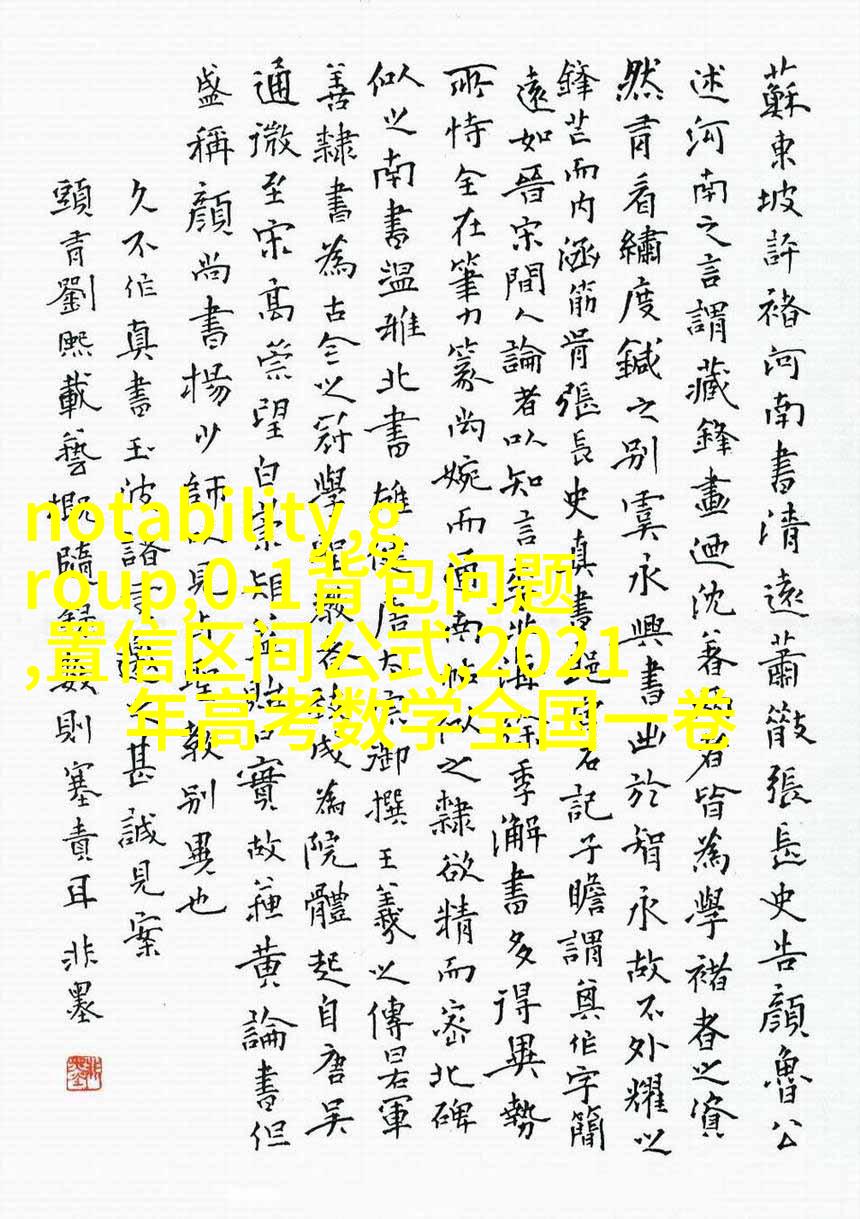 蘇東坡評褚河南書清遠蕭散張長史告顏魯公
述河南之言謂藏鋒畫迺沈著者皆為學褚者之資
然有看繡度鍼之別虞永興書出於智永故不外耀以
鋒芒而內涵筋骨張長史真書郎官石記子瞻謂其作字簡
遠如晉宋間人論者以知言李北海徐季瀚書多得異勢
所恃全在筆力篆尚婉而通南帖似之隸欲精而密北碑
似之南書溫雅北書雄健唐太宗御撰王羲之傳曰右軍
善隸書為古今之冠學程嚴者成為院體起自唐吳
通微至宋高崇望白崇益貽口實故蘇黃論書但
盛稱顏尚書楊少師以見與聖教別異也
久不作真書玉波諸甚誠見案
頭有劉熙載藝概隨錄數則塞責耳 非墨
notability,g
roup,0-1背包问题
,置信区间公式,2021
年高考数学全国一卷